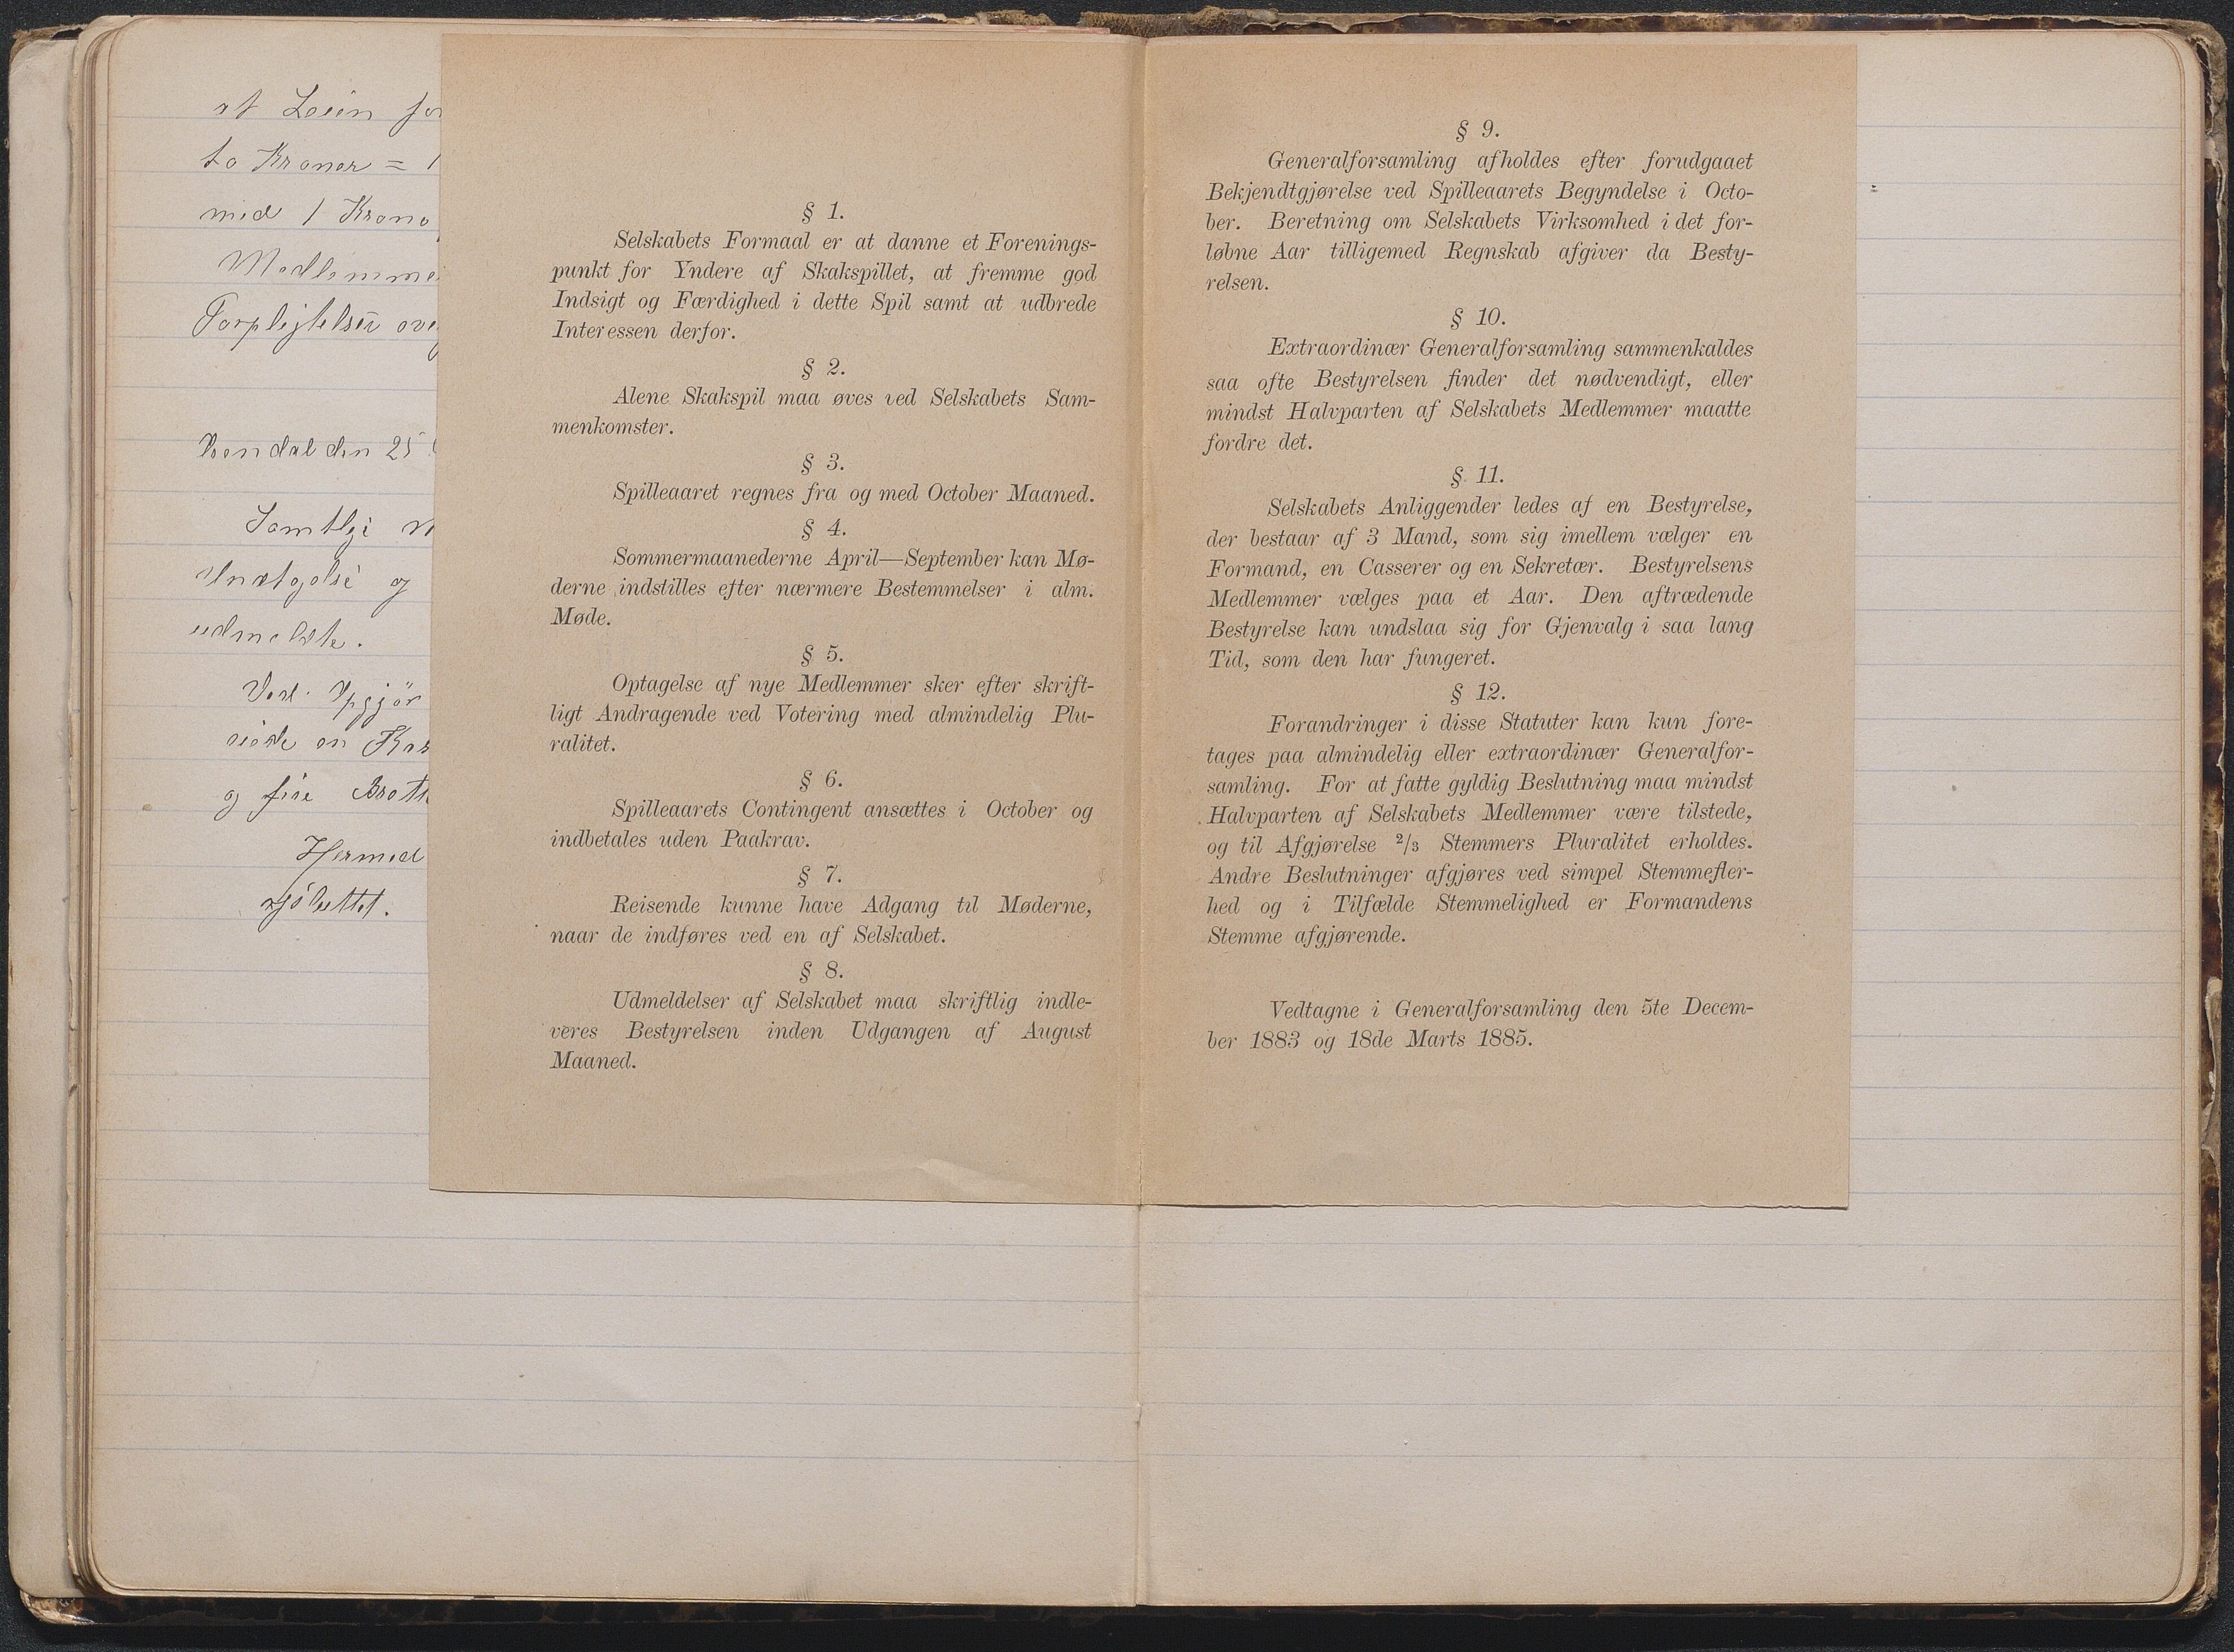 at Leien for
to Kroner = 1
med 1 Krone
Medlemme
Forplejtelsen ove
den 25
Samtlige
og
udmeldte.
Ved Opgjør
en
og fire
Hermed
§ 1.
Selskabets Formaal er at danne et Forenings-
punkt for Yndere af Skakspillet, at fremme god
Indsigt og Færdighed i dette Spil samt at udbrede
Interessen derfor.
§ 2.
Alene Skakspil maa øves ved Selskabets Sam-
menkomster.
§ 3.
Spilleaaret regnes fra og med October Maaned.
§ 4.
Sommermaanederne April—September kan Mø-
derne indstilles efter nærmere Bestemmelser i alm.
Møde.
§ 5.
Optagelse af nye Medlemmer sker efter skrift-
ligt Andragende ved Votering med almindelig Plu-
ralitet.
§ 6.
Spilleaarets Contingent ansættes i October og
indbetales uden Paakrav.
§ 7.
Reisende kunne have Adgang til Møderne,
naar de indføres ved en af Selskabet.
§ 8.
Udmeldelser af Selskabet maa skriftlig indle-
veres Bestyrelsen inden Udgangen af August
Maaned.
§ 9.
Generalforsamling afholdes efter forudgaaet
Bekjendtgjørelse ved Spilleaarets Begyndelse i Octo-
ber. Beretning om Selskabets Virksomhed i det for-
løbne Aar tilligemed Regnskab afgiver da Besty-
relsen.
§ 10.
Extraordinær Generalforsamling sammenkaldes
saa ofte Bestyrelsen finder det nødvendigt, eller
mindst Halvparten af Selskabets Medlemmer maatte
fordre det.
§ 11.
Selskabets Anliggender ledes af en Bestyrelse,
der bestaar af 3 Mand, som sig imellem vælger en
Formand, en Casserer og en Sekretær. Bestyrelsens
Medlemmer vælges paa et Aar. Den aftrædende
Bestyrelse kan undslaa sig for Gjenvalg i saa lang
Tid, som den har fungeret.
§ 12.
Forandringer i disse Statuter kan kun fore-
tages paa almindelig eller extraordinær Generalfor-
samling. For at fatte gyldig Beslutning maa mindst
Halvparten af Selskabets Medlemmer være tilstede,
og til Afgjørelse 2/3 Stemmers Pluralitet erholdes.
Andre Beslutninger afgjøres ved simpel Stemmefler-
hed og i Tilfælde Stemmelighed er Formandens
Stemme afgjørende.
Vedtagne i Generalforsamling den 5te Decem-
ber 1883 og 18de Marts 1885.